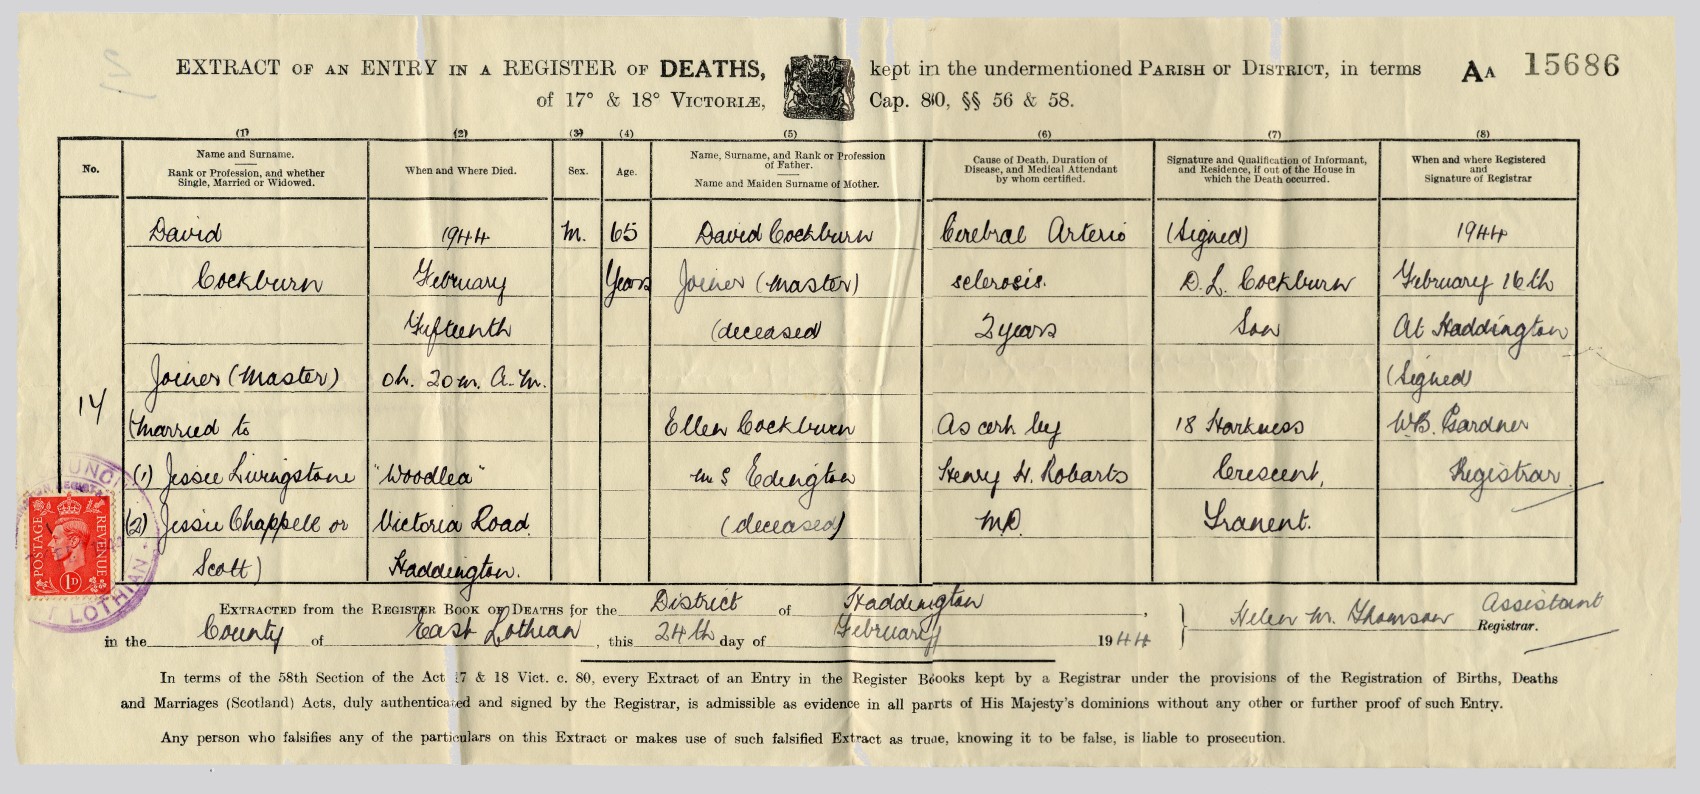 EXTRACT OF AN ENTRY IN A REGISTER OF DEATHS, kept in the undermentioned PARISH OR DISTRICT, in terms AA 15686
of 17° & 18° VICTORIÆ, Cap. 80, §§ 56 & 58.
(1) (2) (3) (4) (5) (6) (7) (8)
No.
Name and Surname.
Rank or Profession, and whether
Single, Married or Widowed.
When and Where Died.
Sex.
Age.
Name, Surname, and Rank or Profession
of Father.
Name and Maiden Surname of Mother.
Cause of Death, Duration of
Disease, and Medical Attendant
by whom certified.
Signature and Qualification of Informant,
and Residence, if out of the House in
which the Death occurred.
When and where Registered
and
Signature of Registrar
14
David
Cockburn
Joiner (Master)
(Married to
(1) Jessie Livingstone
(2) Jessie Chappell or
Scott)
1944
February
Fifteenth
0h. 20m. A.M.
"Woodlea"
Victoria Road
Haddington.
M.
65
Years
David Cockburn
Joiner (Master)
(deceased)
Ellen Cockburn
m S Edington
(deceased)
Cerebral Arterio
sclerosis.
2 years
As cert by
Henry H. Robarts
M.D.
(Signed)
D. L. Cockburn
Son
18 Harkness
Crescent,
Tranent.
1944
February 16th
At Haddington
(Signed)
W.B. Gardner
Registrar
POSTAGE
REVENUE
1D
LOTHIAN
EXTRACTED from the REGISTER BOOK OF DEATHS for the District of Haddington,
in the County of East Lothian, this 24th day of February 1944
Helen M. Thomson Assistant
Registrar.
In terms of the 58th Section of the Act 17 & 18 Vict. c. 80, every Extract of an Entry in the Register Books kept by a Registrar under the provisions of the Registration of Births, Deaths
and Marriages (Scotland) Acts, duly authenticated and signed by the Registrar, is admissible as evidence in all parts of His Majesty's dominions without any other or further proof of such Entry.
Any person who falsifies any of the particulars on this Extract or makes use of such falsified Extract as true, knowing it to be false, is liable to prosecution.